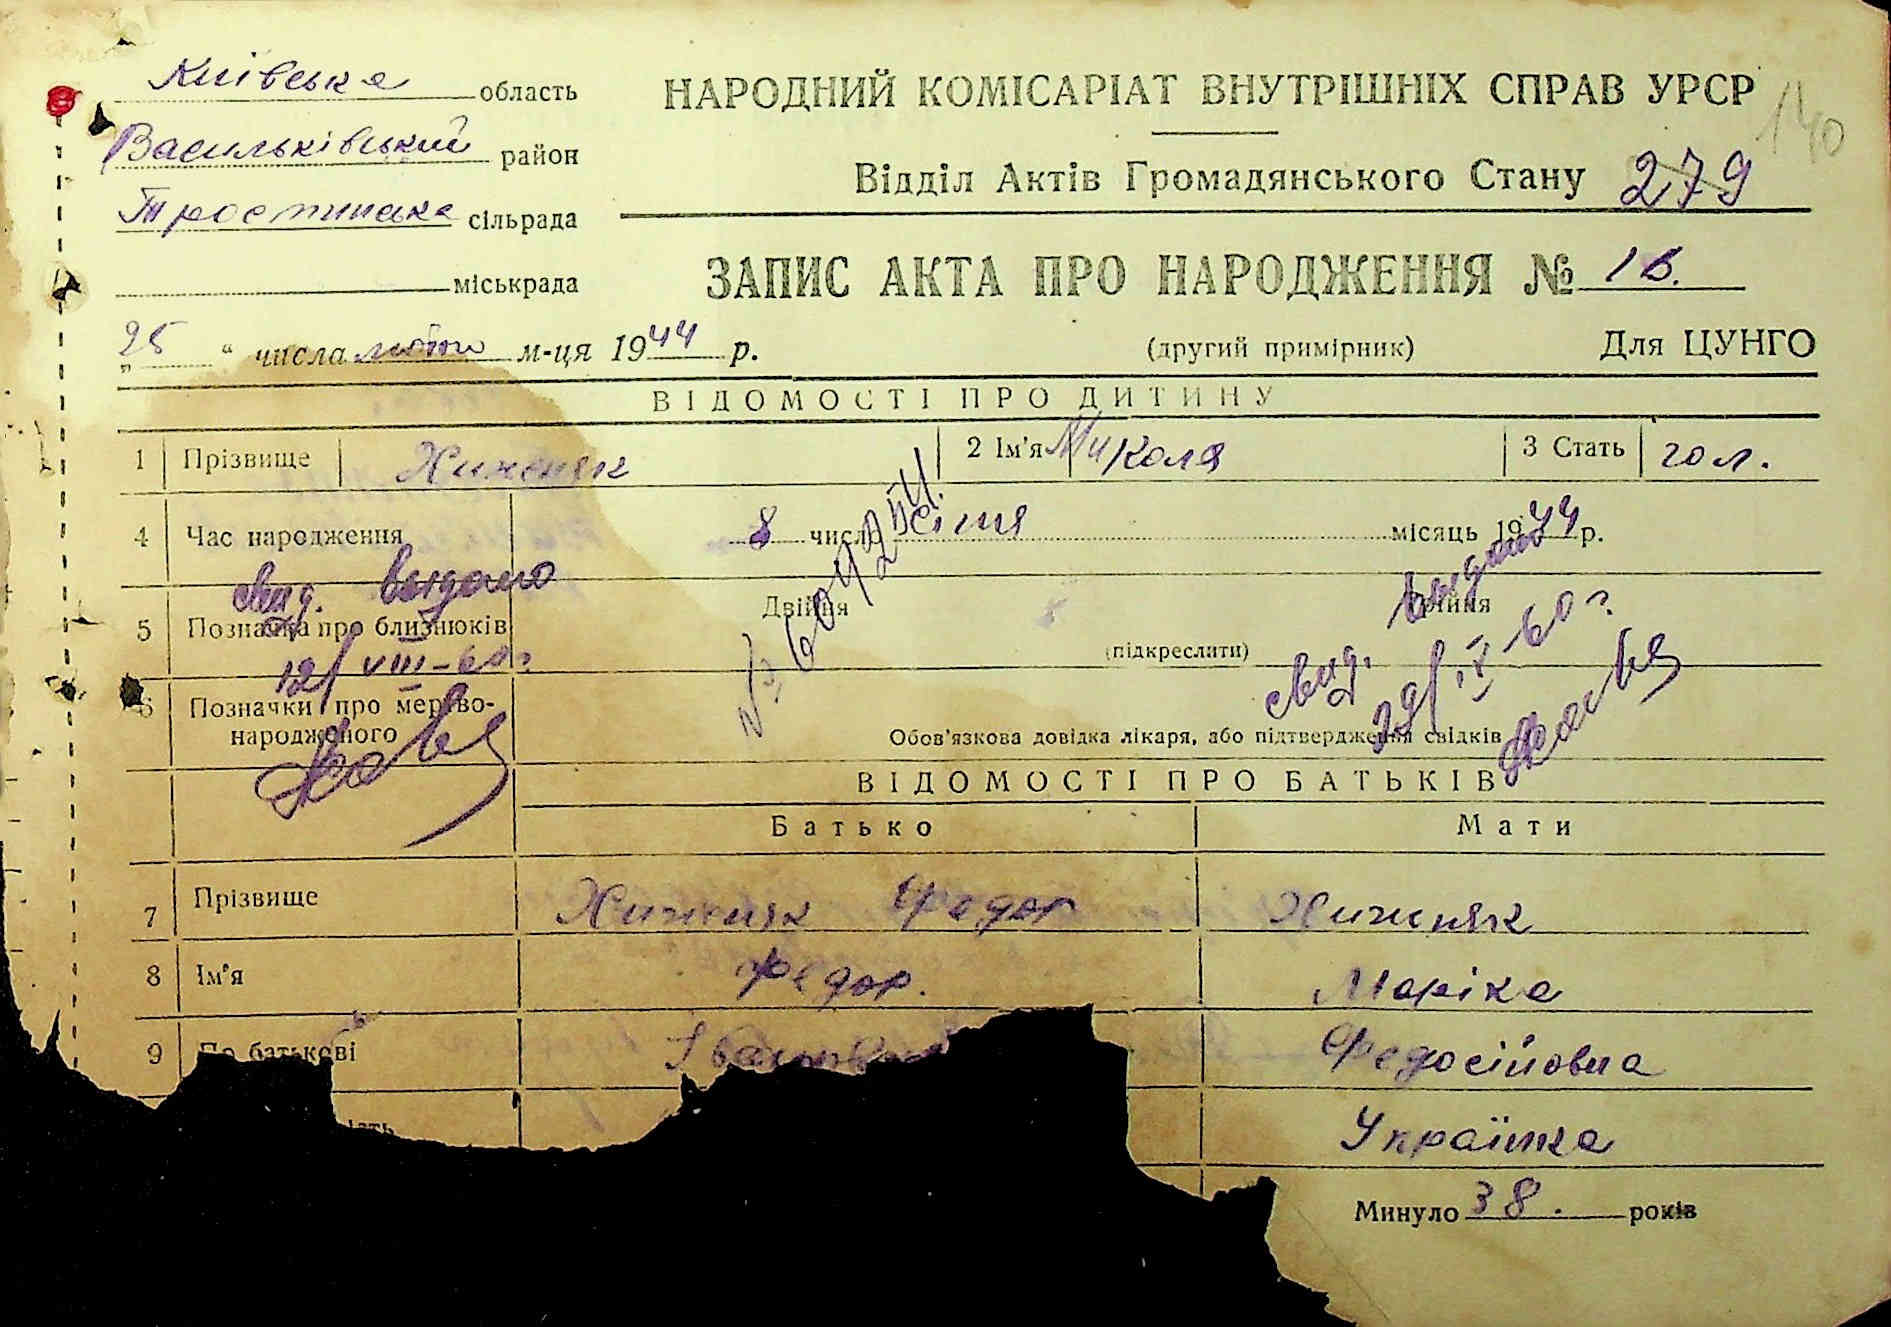 Київська область
Васильківський район
Тростинська сільрада
міськрада
НАРОДНИЙ КОМІСАРІАТ ВНУТРІШНІХ СПРАВ УРСР
140
Відділ Актів Громадянського Стану 279
ЗАПИС АКТА ПРО НАРОДЖЕННЯ № 16.
„25“ числа м-ця 1944 р.
(другий примірник) Для ЦУНГО
ВІДОМОСТІ ПРО ДИТИНУ
1 Прізвище Хижняк 2 Ім'я Микола 3 Стать чол.
4 Час народження 8 число січня місяць 1944 р.
свид. выдано
12/VIII-60г.
№ 609254.
свид. выдано
29/IX-60г.
5 Позначка про близнюків Двійня Трійня
(підкреслити)
6 Позначки про мертво-
народженого
Обов'язкова довідка лікаря, або підтвердження свідків
ВІДОМОСТІ ПРО БАТЬКІВ
Батько Мати
7 Прізвище Хижняк Федор Хижняк
8 Ім'я Федор. Маріка
9 По батькові Федосійовна
Українка
Минуло 38. років